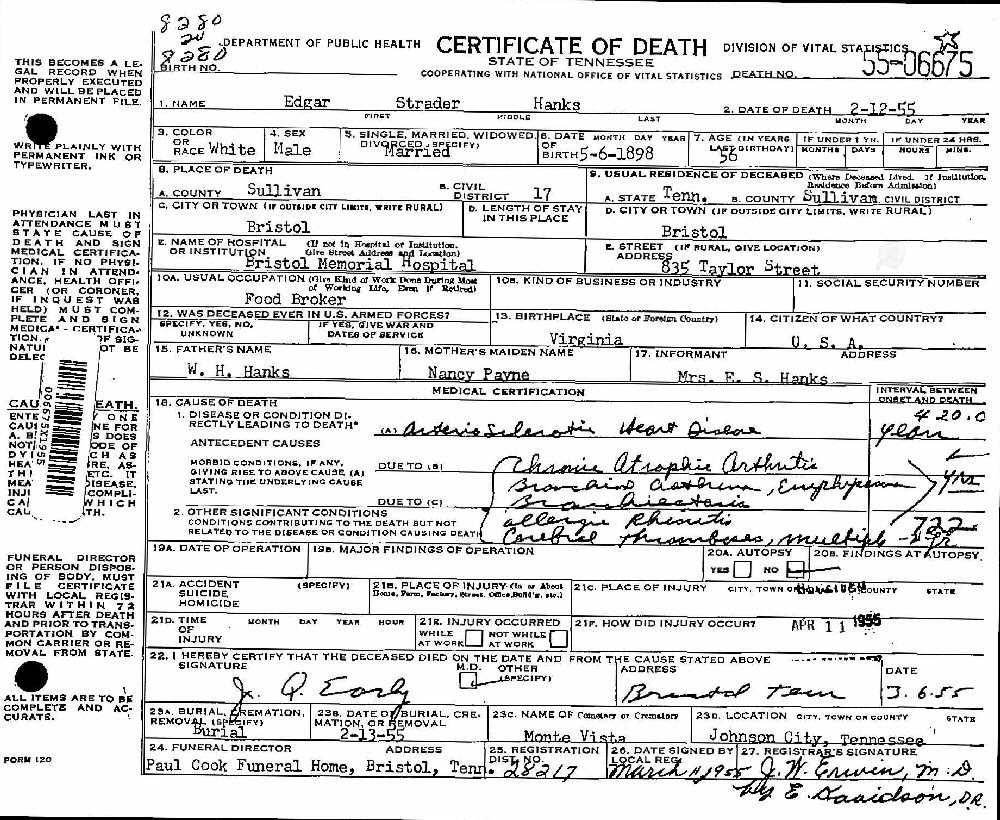 8280
24
8280
DEPARTMENT OF PUBLIC HEALTH CERTIFICATE OF DEATH DIVISION OF VITAL STATISTICS
STATE OF TENNESSEE
COOPERATING WITH NATIONAL OFFICE OF VITAL STATISTICS DEATH NO. 55-06675
BIRTH NO.
THIS BECOMES A LE-
GAL RECORD WHEN
PROPERLY EXECUTED
AND WILL BE PLACED
IN PERMANENT FILE.
WRITE PLAINLY WITH
PERMANENT INK OR
TYPEWRITER.
PHYSICIAN LAST IN
ATTENDANCE MUST
STATE CAUSE OF
DEATH AND SIGN
MEDICAL CERTIFICA-
TION. IF NO PHYSI-
CIAN IN ATTEND-
ANCE, HEALTH OFFI-
CER (OR CORONER,
IF INQUEST WAS
HELD) MUST COM-
PLETE AND SIGN
FUNERAL DIRECTOR
OR PERSON DISPOS-
ING OF BODY, MUST
FILE CERTIFICATE
WITH LOCAL REGIS-
TRAR WITHIN 72
HOURS AFTER DEATH
AND PRIOR TO TRANS-
PORTATION BY COM-
MON CARRIER OR RE-
MOVAL FROM STATE.
ALL ITEMS ARE TO BE
COMPLETE AND AC-
CURATE.
FORM 120
1. NAME Edgar Strader Hanks 2. DATE OF DEATH 2-12-55
FIRST MIDDLE LAST MONTH DAY YEAR
3. COLOR OR RACE White 4. SEX Male 5. SINGLE, MARRIED, WIDOWED, DIVORCED (SPECIFY) Married 6. DATE OF BIRTH MONTH DAY YEAR 5-6-1898 7. AGE (IN YEARS LAST BIRTHDAY) 56 IF UNDER 1 YR. MONTHS DAYS IF UNDER 24 HRS. HOURS MINS.
8. PLACE OF DEATH 9. USUAL RESIDENCE OF DECEASED (Where Deceased Lived. If Institution, Residence Before Admission)
A. COUNTY Sullivan B. CIVIL DISTRICT 17 A. STATE Tenn. B. COUNTY Sullivan C. CIVIL DISTRICT
C. CITY OR TOWN (IF OUTSIDE CITY LIMITS, WRITE RURAL) Bristol D. LENGTH OF STAY IN THIS PLACE D. CITY OR TOWN (IF OUTSIDE CITY LIMITS, WRITE RURAL) Bristol
E. NAME OF HOSPITAL OR INSTITUTION (If not in Hospital or Institution, Give Street Address and Location) Bristol Memorial Hospital E. STREET ADDRESS (IF RURAL, GIVE LOCATION) 835 Taylor Street
10A. USUAL OCCUPATION (Give Kind of Work Done During Most of Working Life, Even If Retired) Food Broker 10B. KIND OF BUSINESS OR INDUSTRY 11. SOCIAL SECURITY NUMBER
12. WAS DECEASED EVER IN U.S. ARMED FORCES? SPECIFY, YES, NO, UNKNOWN IF YES, GIVE WAR AND DATES OF SERVICE 13. BIRTHPLACE (State or Foreign Country) Virginia 14. CITIZEN OF WHAT COUNTRY? U. S. A.
15. FATHER'S NAME W. H. Hanks 16. MOTHER'S MAIDEN NAME Nancy Payne 17. INFORMANT ADDRESS Mrs. E. S. Hanks
MEDICAL CERTIFICATION INTERVAL BETWEEN ONSET AND DEATH
18. CAUSE OF DEATH
1. DISEASE OR CONDITION DI-
RECTLY LEADING TO DEATH* (A) Arterio Sclerotic Heart Disease 420.0 years
ANTECEDENT CAUSES
MORBID CONDITIONS, IF ANY, GIVING RISE TO ABOVE CAUSE (A) STATING THE UNDERLYING CAUSE LAST. DUE TO (B) Chronic Atrophic Arthritis
Bronchial Asthma, Emphysema yrs
DUE TO (C) Bronchiectasis
2. OTHER SIGNIFICANT CONDITIONS
CONDITIONS CONTRIBUTING TO THE DEATH BUT NOT RELATED TO THE DISEASE OR CONDITION CAUSING DEATH allergic Rhinitis
Cerebral Thromboses, multiple
19A. DATE OF OPERATION 19B. MAJOR FINDINGS OF OPERATION 20A. AUTOPSY YES NO 20B. FINDINGS AT AUTOPSY.
21A. ACCIDENT SUICIDE HOMICIDE (SPECIFY) 21B. PLACE OF INJURY (In or About Home, Farm, Factory, Street, Office, Build'g, etc.) 21C. PLACE OF INJURY CITY, TOWN COUNTY STATE
21D. TIME OF INJURY MONTH DAY YEAR HOUR 21E. INJURY OCCURRED WHILE AT WORK NOT WHILE AT WORK 21F. HOW DID INJURY OCCUR? APR 11 1955
22. I HEREBY CERTIFY THAT THE DECEASED DIED ON THE DATE AND FROM THE CAUSE STATED ABOVE
SIGNATURE M.D. OTHER (SPECIFY) ADDRESS DATE
Bristol Tenn 3.6.55
23A. BURIAL, CREMATION, REMOVAL (SPECIFY) Burial 23B. DATE OF BURIAL, CREMATION, OR REMOVAL 2-13-55 23C. NAME OF Cemetery or Crematory Monte Vista 23D. LOCATION CITY, TOWN OR COUNTY STATE Johnson City, Tennessee
24. FUNERAL DIRECTOR ADDRESS Paul Cook Funeral Home, Bristol, Tenn. 25. REGISTRATION DIST. NO. 28217 26. DATE SIGNED BY LOCAL REG. March 11, 1955 27. REGISTRAR'S SIGNATURE J. W. Erwin, M.D.
by E. Davidson, D.R.